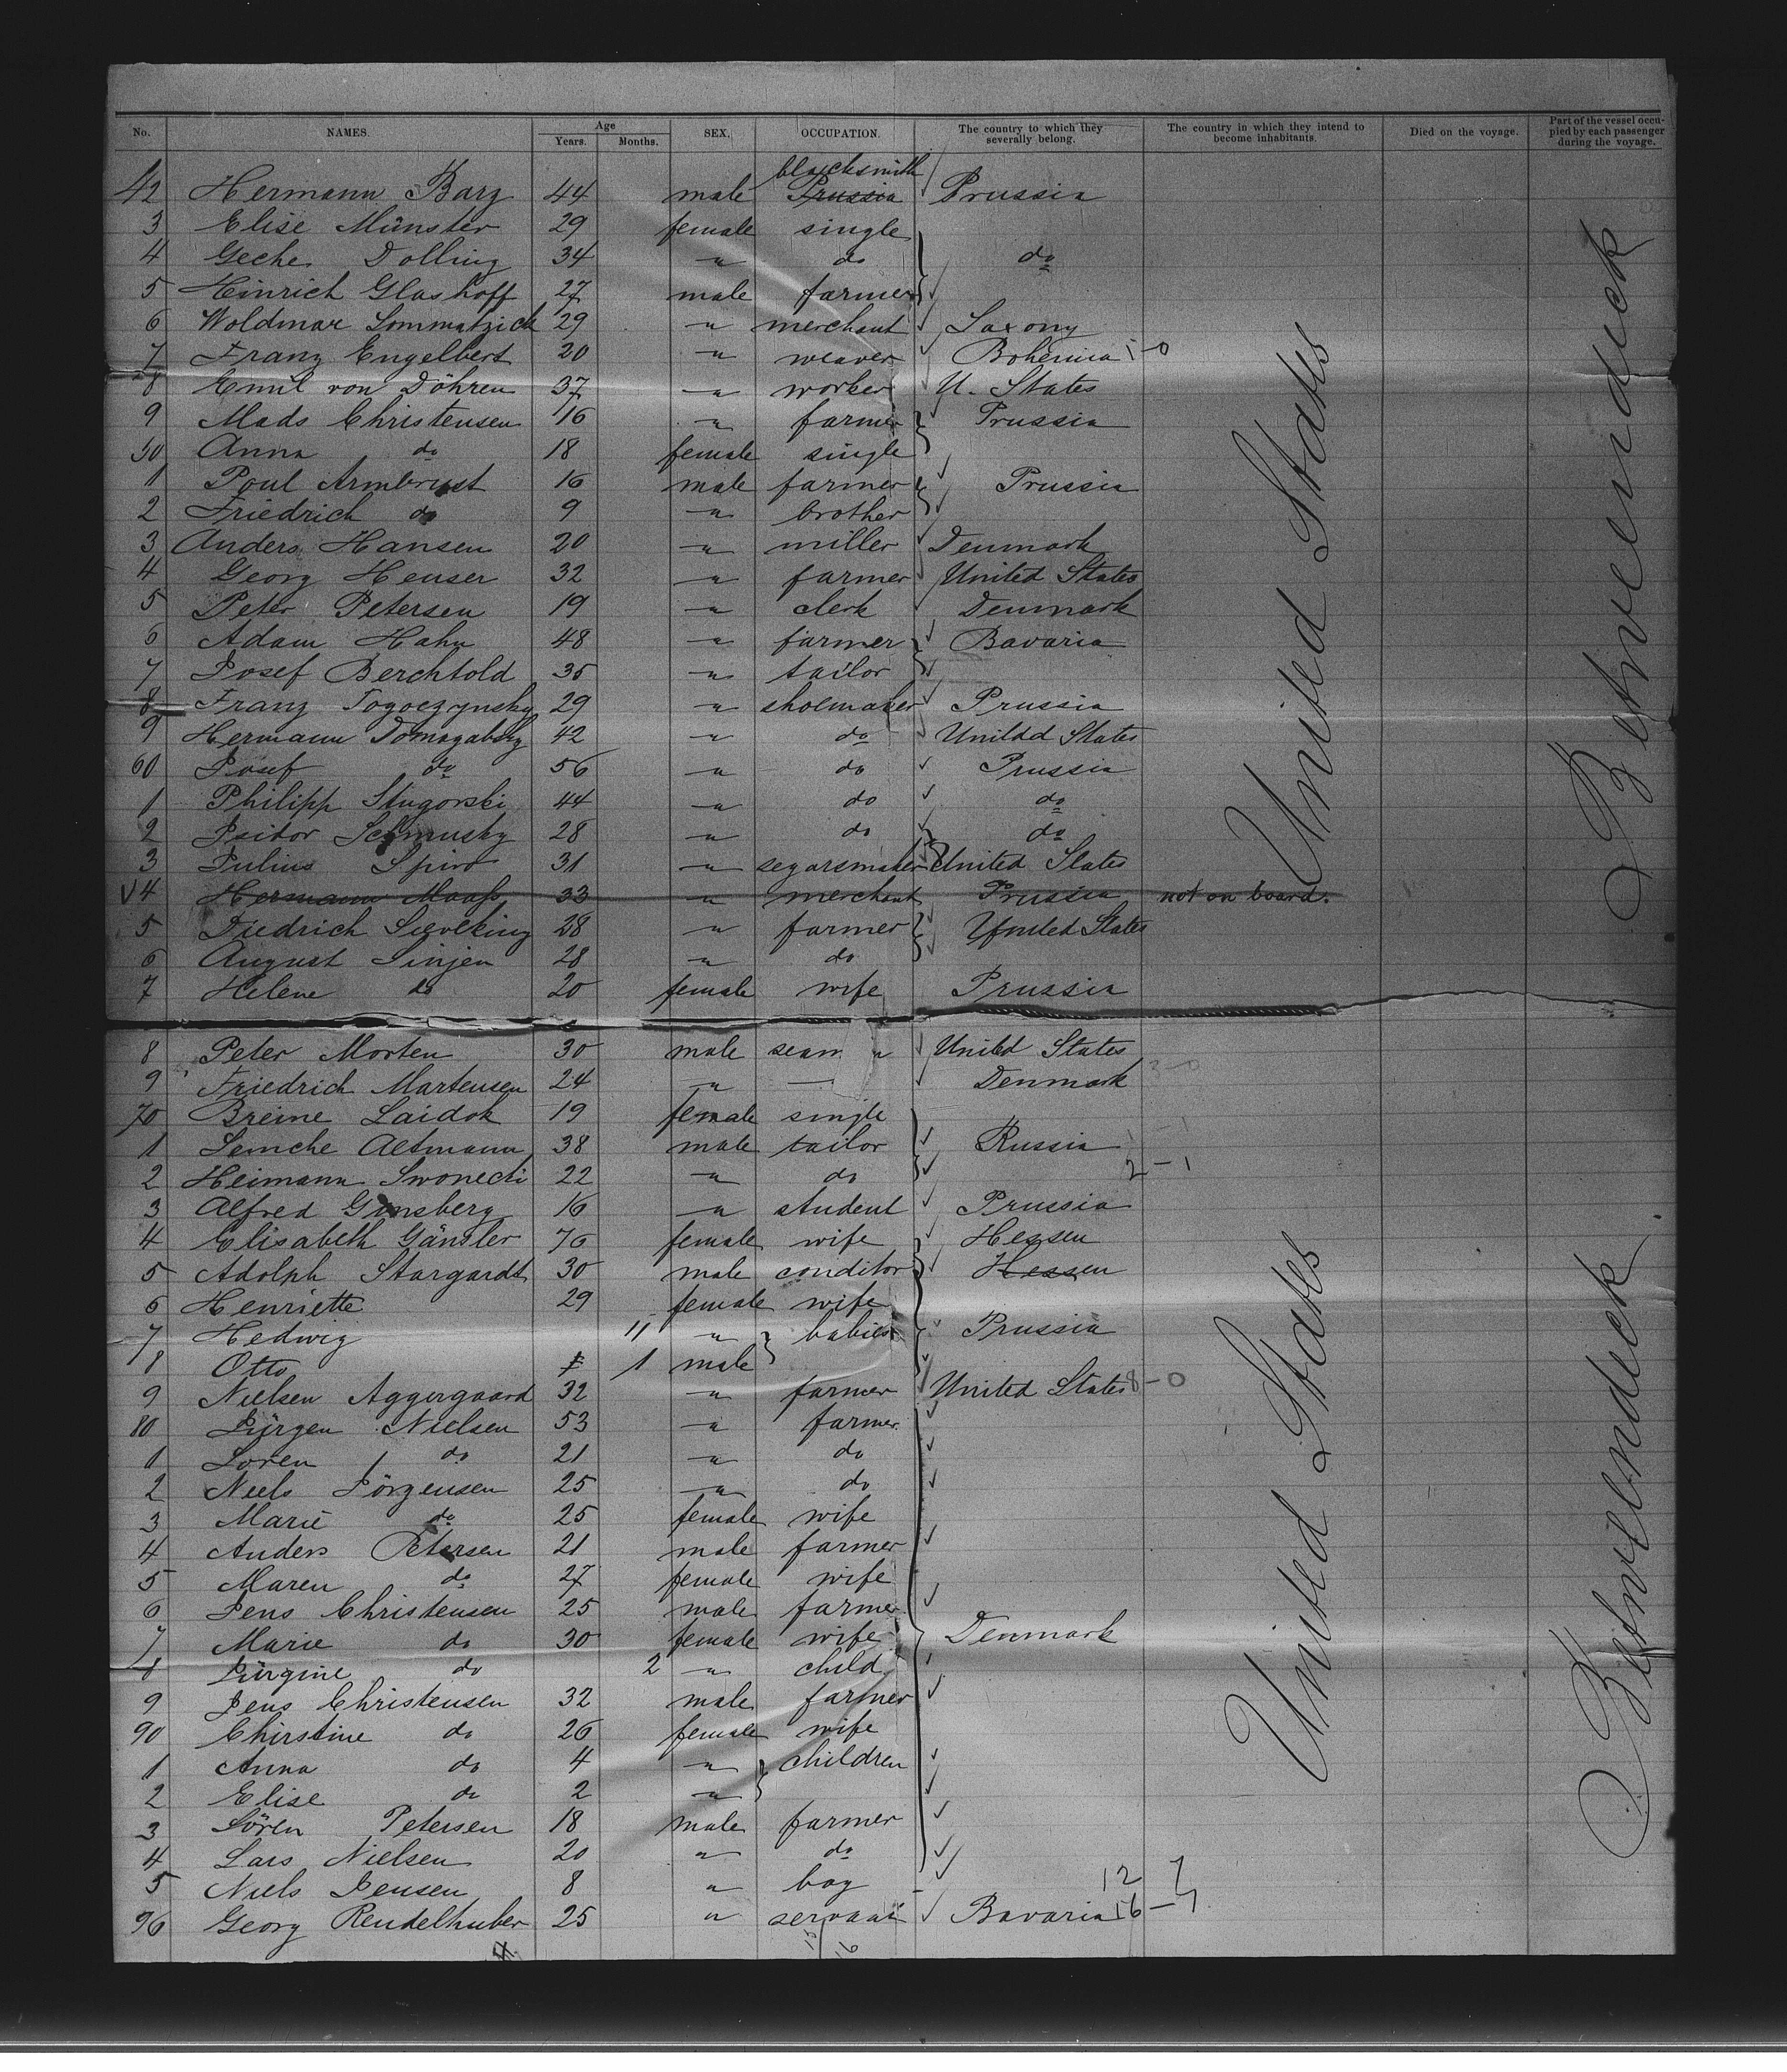 No. NAMES. Age Years. Months. SEX. OCCUPATION. The country to which they severally belong. The country in which they intend to become inhabitants. Died on the voyage. Part of the vessel occupied by each passenger during the voyage.
blacksmith
42 Hermann Barz 44 male Prussia Prussia
3 Elise Münster 29 female single
4 Geche Dolling 34 " do do
5 Hinrich Glashoff 27 male farmer
6 Woldmar Lommatzick 29 " merchant Saxony
7 Franz Engelbert 20 " weaver Bohemia 1-0
8 Emil von Döhren 37 " worker U. States
9 Mads Christensen 16 " farmer Prussia
50 Anna do 18 female single
1 Poul Armbrust 16 male farmer Prussia
2 Friedrich do 9 " brother
3 Anders Hansen 20 " miller Denmark
4 Georg Heuser 32 " farmer United States
5 Peter Petersen 19 " clerk Denmark
6 Adam Hahn 48 " farmer Bavaria
7 Josef Berchtold 35 " tailor
8 Franz Togoczynsky 29 " shoemaker Prussia
9 Hermann 42 " do Unitdd States
60 Josef do 56 " do Prussia
1 Philipp Slugorski 44 " do do
2 Isidor 28 " do do
3 Julius Spiro 31 " segarsmaker United States
4 Hermann Maaß 33 " merchant Prussia not on board.
5 Diedrich Sieveking 28 " farmer United States
6 August Sinjen 28 " do
7 Helene do 20 female wife Prussia
8 Peter Morten 30 male seam " United States
9 Friedrich Martensen 24 " — Denmark 3-0
70 Breine Laidok 19 female single
1 Semche Altmann 38 male tailor Russia 1-1
2 Heimann Swonecki 22 " do 2-1
3 Alfred Ginsberg 16 " student Prussia
4 Elisabeth Gänsler 76 female wife Hessen
5 Adolph Stargardt 30 male conditor Hessen
6 Henriette 29 female wife
7 Hedwig 11 " babies Prussia
8 Otto 1 male
9 Nielsen Aggergaard 32 " farmer United States 8-0
80 Jürgen Nielsen 53 " farmer
1 Soren do 21 " do
2 Niels Jörgensen 25 " do
3 Marie do 25 female wife
4 Anders Petersen 21 male farmer
5 Maren do 27 female wife
6 Jens Christensen 25 male farmer
7 Marie do 30 female wife Denmark
8 Jürgine do 2 " child
9 Jens Christensen 32 male farmer
90 Chirstine do 26 female wife
1 Anna do 4 " children
2 Elise do 2 "
3 Sören Petersen 18 male farmer
4 Lars Nielsen 20 " do
5 Niels Jensen 8 " boy 12 7
96 Georg Rendelhuber 25 " servant Bavaria 16-7
United States
United States
Zwischendeck
Zwischendeck